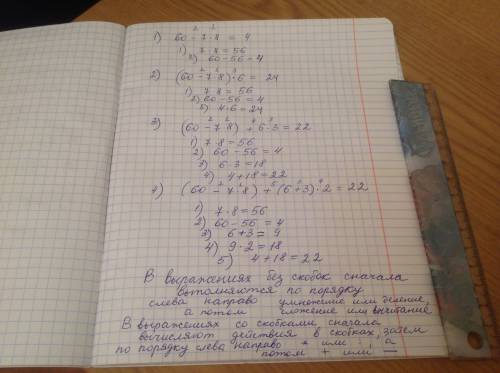 1) 60 - 7·8 = 4
1) 7·8 = 56
2) 60 - 56 = 4
2) (60 - 7·8)·6 = 24
1) 7·8 = 56
2) 60 - 56 = 4
3) 4·6 = 24
3) (60 - 7·8) + 6·3 = 22
1) 7·8 = 56
2) 60 - 56 = 4
3) 6·3 = 18
4) 4 + 18 = 22
4) (60 - 7·8) + (6 + 3)·2 = 22
1) 7·8 = 56
2) 60 - 56 = 4
3) 6 + 3 = 9
4) 9·2 = 18
5) 4 + 18 = 22
В выражениях без скобок сначала
выполняются по порядку
слева направо умножение или деление,
а потом сложение или вычитание.
В выражениях со скобками сначала
вычисляют действия в скобках, затем
по порядку слева направо · или :, а
потом + или —